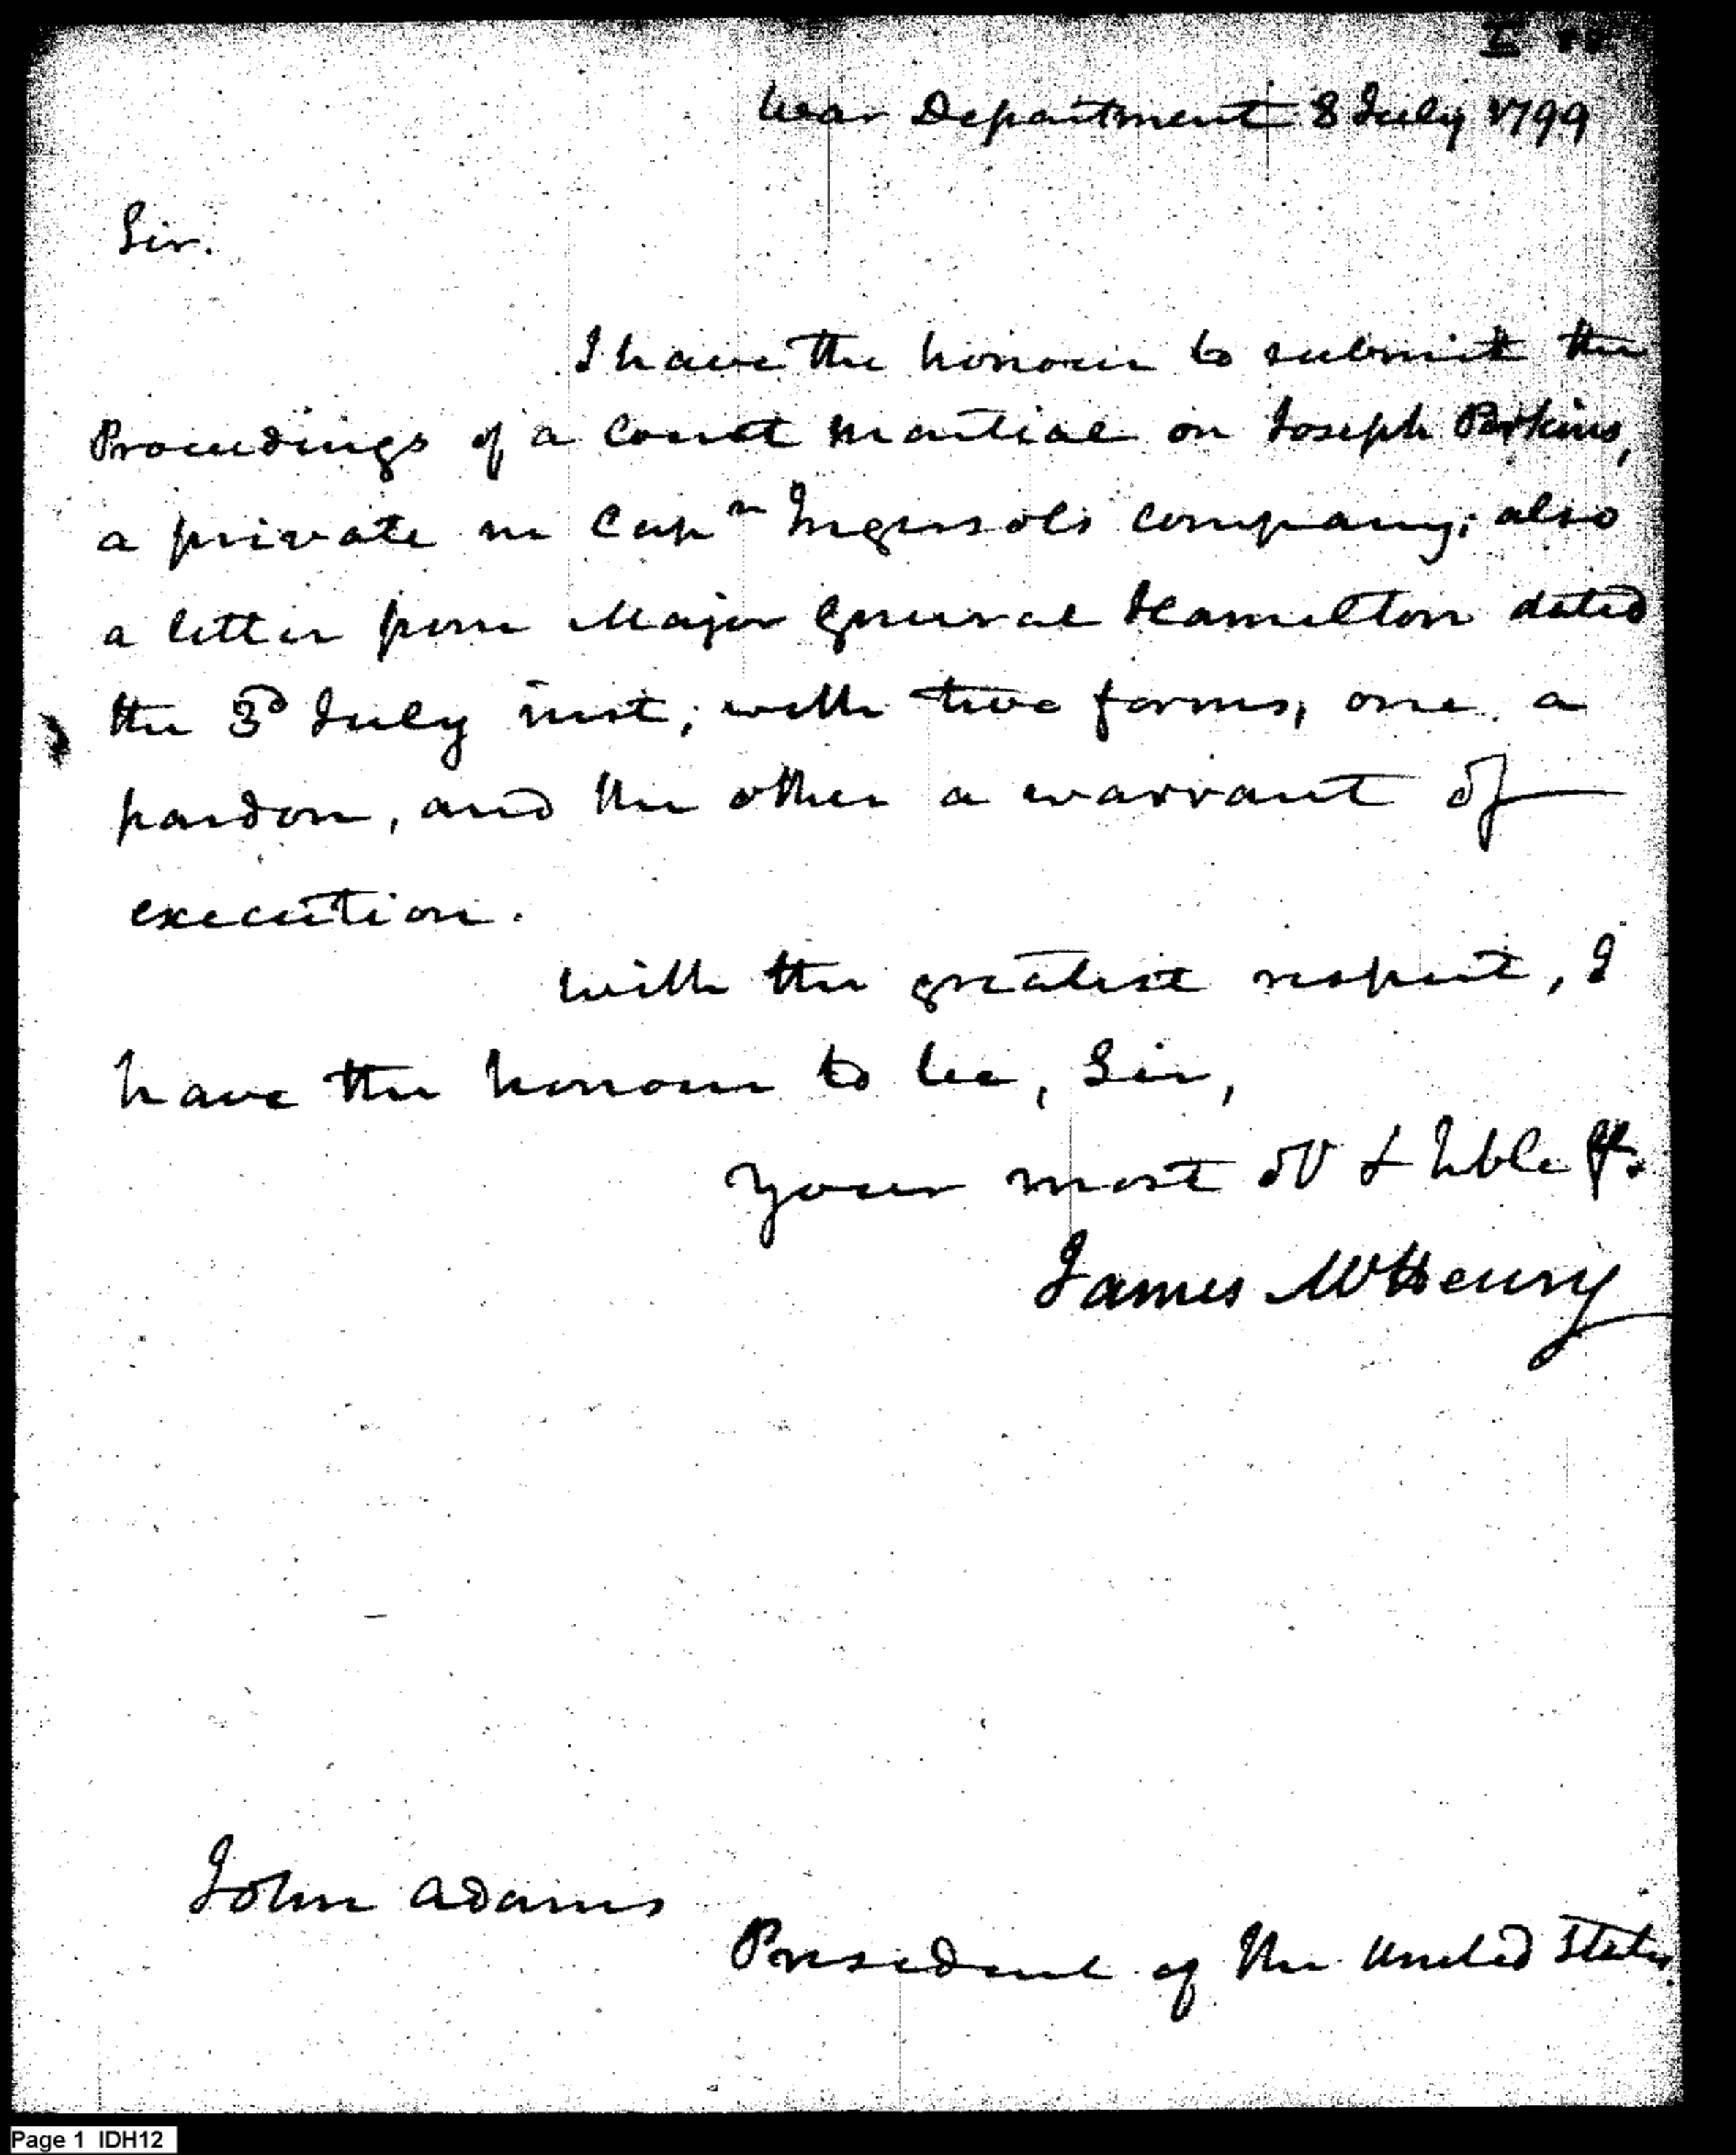 War Department 8 July 1799
Sir.
I have the honour to submit the
Proceedings of a Court Martial on Joseph Perkins,
a private in Capn Ingersols company; also
a letter from Major General Hamilton dated
the 3d July inst; with two forms, one a
pardon, and the other a warrant of
execution.
With the greatest respect, I
have the honour to be, Sir,
Your most ob & hble
James McHenry
John Adams
President of the United States.
Page 1 IDH12